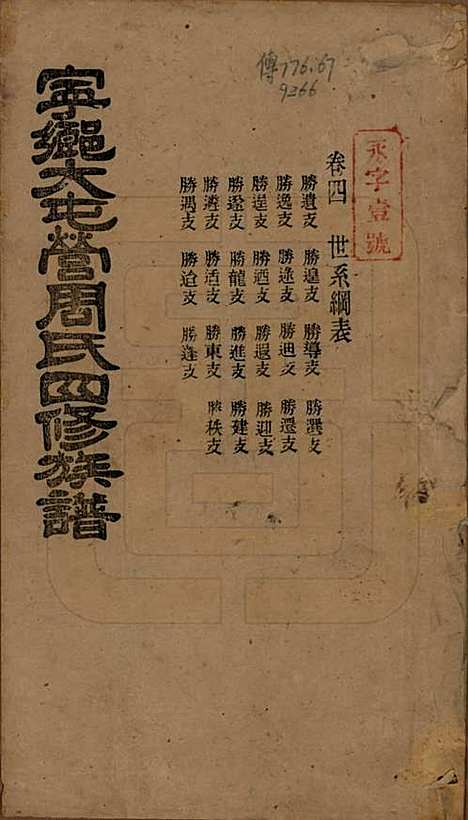 傳776.67
9266
永字壹號
卷四　世系綱表
勝遺支　勝遑支　勝導支　勝選支
勝逸支　勝逵支　勝迥支　勝還支
勝逞支　勝迺支　勝遐支　勝迎支
勝邃支　勝龍支　勝進支　勝建支
勝遴支　勝适支　勝東支　勝秩支
勝遇支　勝迨支　勝逢支
寧鄉大屯營周氏四修族譜